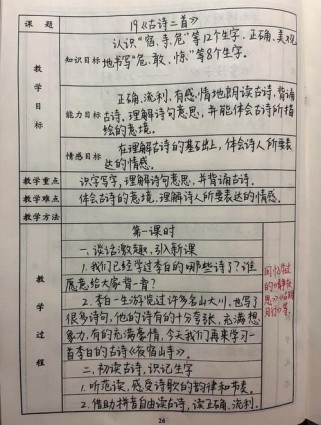 课题 19《古诗二首》
认识“宿、寺、危”等12个生字,正确、美观
知识目标 地书写“危、敢、惊”等8个生字。
正确、流利、有感情地朗读古诗,背诵
能力目标 古诗,理解诗句意思,并能体会古诗所描
绘的意境。
教学目标
情感目标 在理解古诗的基础上,体会诗人所要表
达的情感。
教学重点 识字写字,理解诗句意思,并背诵古诗。
教学难点 体会古诗的意境,理解诗人所要表达的情感。
教学方法
第一课时
一、谈话激趣,引入新课
1.我们已经学过李白的哪些诗了?谁
愿意给大家背一背?
2.李白一生游览过许多名山大川,也写了
很多诗句,他的诗有的十分夸张,充满想
象力,有的充满豪情,今天我们再来学习一
首李白的古诗《夜宿山寺》。
二、初读古诗,识记生字
1.听范读,感受诗歌的韵律和节奏。
2.借助拼音自由读古诗,读正确、流利。
教学过程
回忆学过
的《静夜
思》《古朗
月行》等。
26